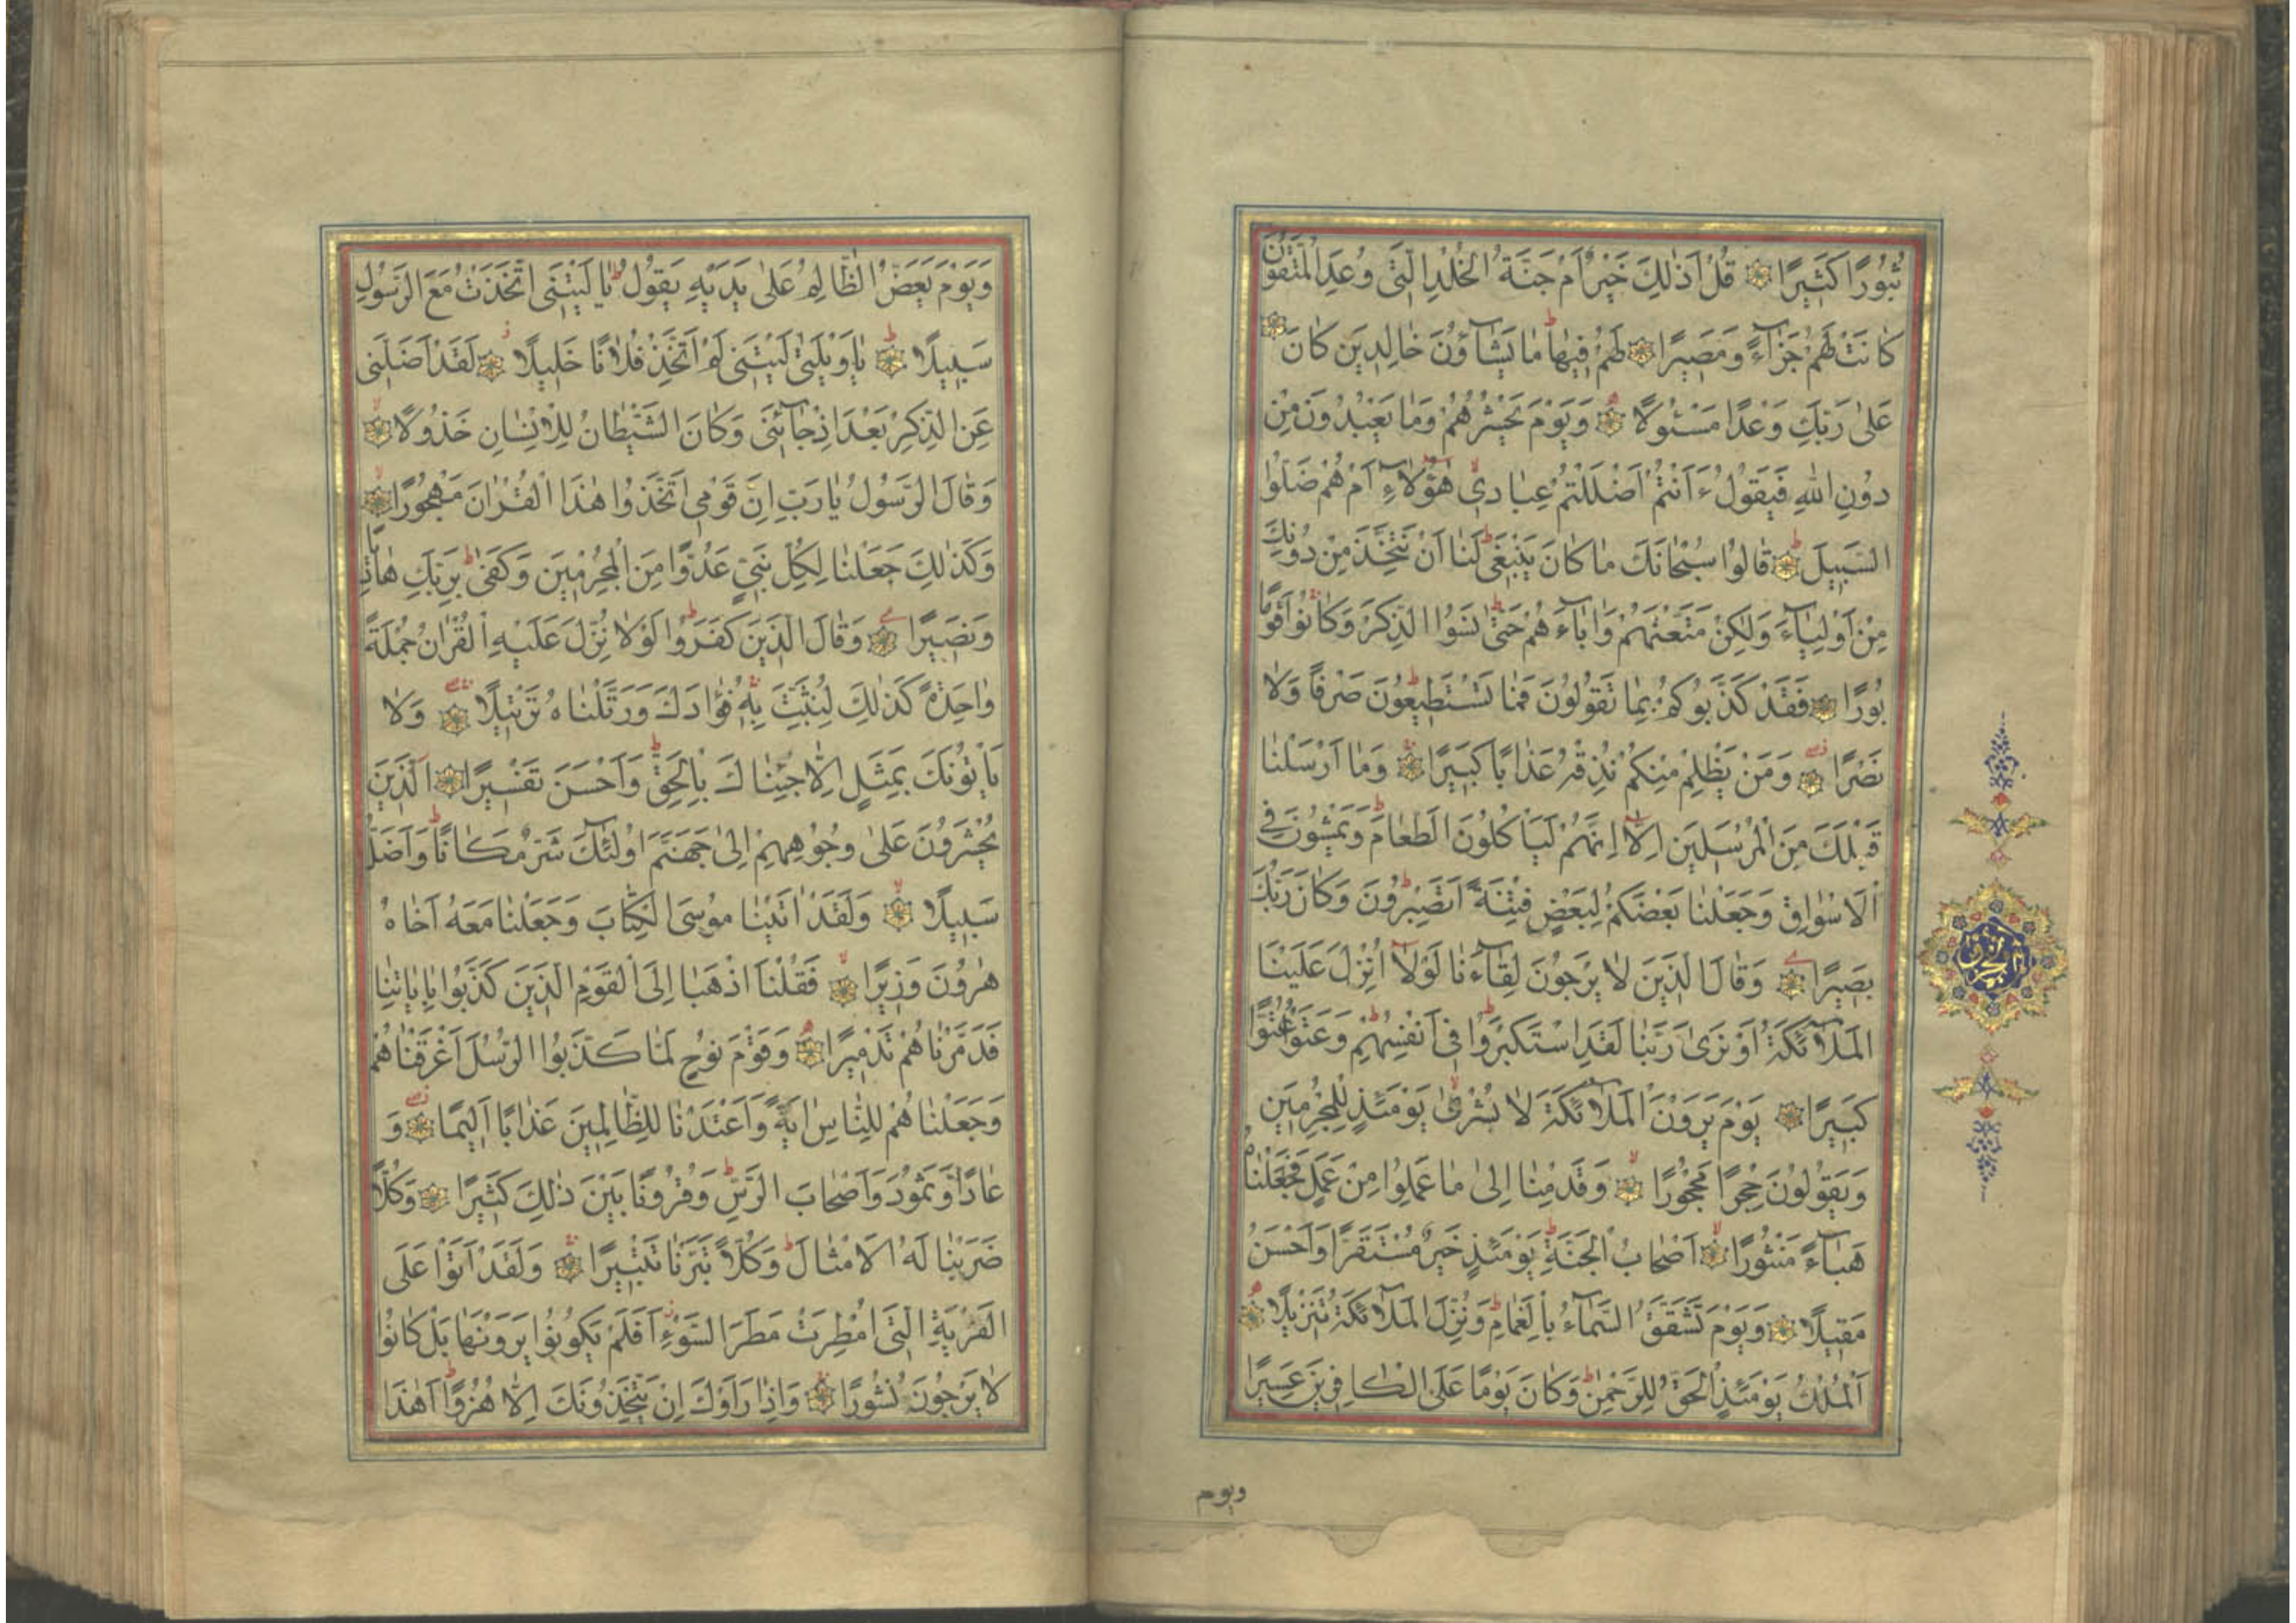 ثُبُورًا كَثِيرًا قُلْ اَذٰلِكَ خَيْرٌ اَمْ جَنَّةُ الْخُلْدِ الَّتِي وُعِدَ الْمُتَّقُونَ
كَانَتْ لَهُمْ جَزَآءً وَمَصِيرًا لَهُمْ فِيهَا مَا يَشَآؤُنَ خَالِدِينَ كَانَ
عَلٰى رَبِّكَ وَعْدًا مَسْئُولًا وَيَوْمَ يَحْشُرُهُمْ وَمَا يَعْبُدُونَ مِنْ
دُونِ اللّٰهِ فَيَقُولُ ءَاَنْتُمْ اَضْلَلْتُمْ عِبَادِي هٰٓؤُلَآءِ اَمْ هُمْ ضَلُّوا
السَّبِيلَ قَالُوا سُبْحَانَكَ مَا كَانَ يَنْبَغِي لَنَا اَنْ نَتَّخِذَ مِنْ دُونِكَ
مِنْ اَوْلِيَآءَ وَلٰكِنْ مَتَّعْتَهُمْ وَاٰبَآءَهُمْ حَتّٰى نَسُوا الذِّكْرَ وَكَانُوا قَوْمًا
بُورًا فَقَدْ كَذَّبُوكُمْ بِمَا تَقُولُونَ فَمَا تَسْتَطِيعُونَ صَرْفًا وَلَا
نَصْرًا وَمَنْ يَظْلِمْ مِنْكُمْ نُذِقْهُ عَذَابًا كَبِيرًا وَمَا اَرْسَلْنَا
قَبْلَكَ مِنَ الْمُرْسَلِينَ اِلَّا اِنَّهُمْ لَيَأْكُلُونَ الطَّعَامَ وَيَمْشُونَ فِي
الْاَسْوَاقِ وَجَعَلْنَا بَعْضَكُمْ لِبَعْضٍ فِتْنَةً اَتَصْبِرُونَ وَكَانَ رَبُّكَ
بَصِيرًا وَقَالَ الَّذِينَ لَا يَرْجُونَ لِقَآءَنَا لَوْلَا اُنْزِلَ عَلَيْنَا
الْمَلَآئِكَةُ اَوْ نَرٰى رَبَّنَا لَقَدِ اسْتَكْبَرُوا فِي اَنْفُسِهِمْ وَعَتَوْ عُتُوًّا
كَبِيرًا يَوْمَ يَرَوْنَ الْمَلَآئِكَةَ لَا بُشْرٰى يَوْمَئِذٍ لِلْمُجْرِمِينَ
وَيَقُولُونَ حِجْرًا مَحْجُورًا وَقَدِمْنَا اِلٰى مَا عَمِلُوا مِنْ عَمَلٍ فَجَعَلْنَاهُ
هَبَآءً مَنْثُورًا اَصْحَابُ الْجَنَّةِ يَوْمَئِذٍ خَيْرٌ مُسْتَقَرًّا وَاَحْسَنُ
مَقِيلًا وَيَوْمَ تَشَقَّقُ السَّمَآءُ بِالْغَمَامِ وَنُزِّلَ الْمَلَآئِكَةُ تَنْزِيلًا
اَلْمُلْكُ يَوْمَئِذٍ الْحَقُّ لِلرَّحْمٰنِ وَكَانَ يَوْمًا عَلَى الْكَافِرِينَ عَسِيرًا
ويوم
وَيَوْمَ يَعَضُّ الظَّالِمُ عَلٰى يَدَيْهِ يَقُولُ يَا لَيْتَنِي اتَّخَذْتُ مَعَ الرَّسُولِ
سَبِيلًا يَاوَيْلَتٰى لَيْتَنِي لَمْ اَتَّخِذْ فُلَانًا خَلِيلًا لَقَدْ اَضَلَّنِي
عَنِ الذِّكْرِ بَعْدَ اِذْ جَآئَنِي وَكَانَ الشَّيْطَانُ لِلْاِنْسَانِ خَذُولًا
وَقَالَ الرَّسُولُ يَارَبِّ اِنَّ قَوْمِي اتَّخَذُوا هٰذَا الْقُرْاٰنَ مَهْجُورًا
وَكَذٰلِكَ جَعَلْنَا لِكُلِّ نَبِيٍّ عَدُوًّا مِنَ الْمُجْرِمِينَ وَكَفٰى بِرَبِّكَ هَادِيًا
وَنَصِيرًا وَقَالَ الَّذِينَ كَفَرُوا لَوْلَا نُزِّلَ عَلَيْهِ الْقُرْاٰنُ جُمْلَةً
وَاحِدَةً كَذٰلِكَ لِنُثَبِّتَ بِهِ فُؤَادَكَ وَرَتَّلْنَاهُ تَرْتِيلًا وَلَا
يَأْتُونَكَ بِمَثَلٍ اِلَّا جِئْنَاكَ بِالْحَقِّ وَاَحْسَنَ تَفْسِيرًا اَلَّذِينَ
يُحْشَرُونَ عَلٰى وُجُوهِهِمْ اِلٰى جَهَنَّمَ اُولٰٓئِكَ شَرٌّ مَكَانًا وَاَضَلُّ
سَبِيلًا وَلَقَدْ اٰتَيْنَا مُوسَى الْكِتَابَ وَجَعَلْنَا مَعَهُ اَخَاهُ
هٰرُونَ وَزِيرًا فَقُلْنَا اذْهَبَا اِلَى الْقَوْمِ الَّذِينَ كَذَّبُوا بِاٰيَاتِنَا
فَدَمَّرْنَاهُمْ تَدْمِيرًا وَقَوْمَ نُوحٍ لَمَّا كَذَّبُوا الرُّسُلَ اَغْرَقْنَاهُمْ
وَجَعَلْنَاهُمْ لِلنَّاسِ اٰيَةً وَاَعْتَدْنَا لِلظَّالِمِينَ عَذَابًا اَلِيمًا وَ
عَادًا وَثَمُودَ وَاَصْحَابَ الرَّسِّ وَقُرُونًا بَيْنَ ذٰلِكَ كَثِيرًا وَكُلًّا
ضَرَبْنَا لَهُ الْاَمْثَالَ وَكُلًّا تَبَّرْنَا تَتْبِيرًا وَلَقَدْ اَتَوْا عَلَى
الْقَرْيَةِ الَّتِي اُمْطِرَتْ مَطَرَ السَّوْءِ اَفَلَمْ يَكُونُوا يَرَوْنَهَا بَلْ كَانُوا
لَا يَرْجُونَ نُشُورًا وَاِذَا رَاَوْكَ اِنْ يَتَّخِذُونَكَ اِلَّا هُزُوًا اَهٰذَا